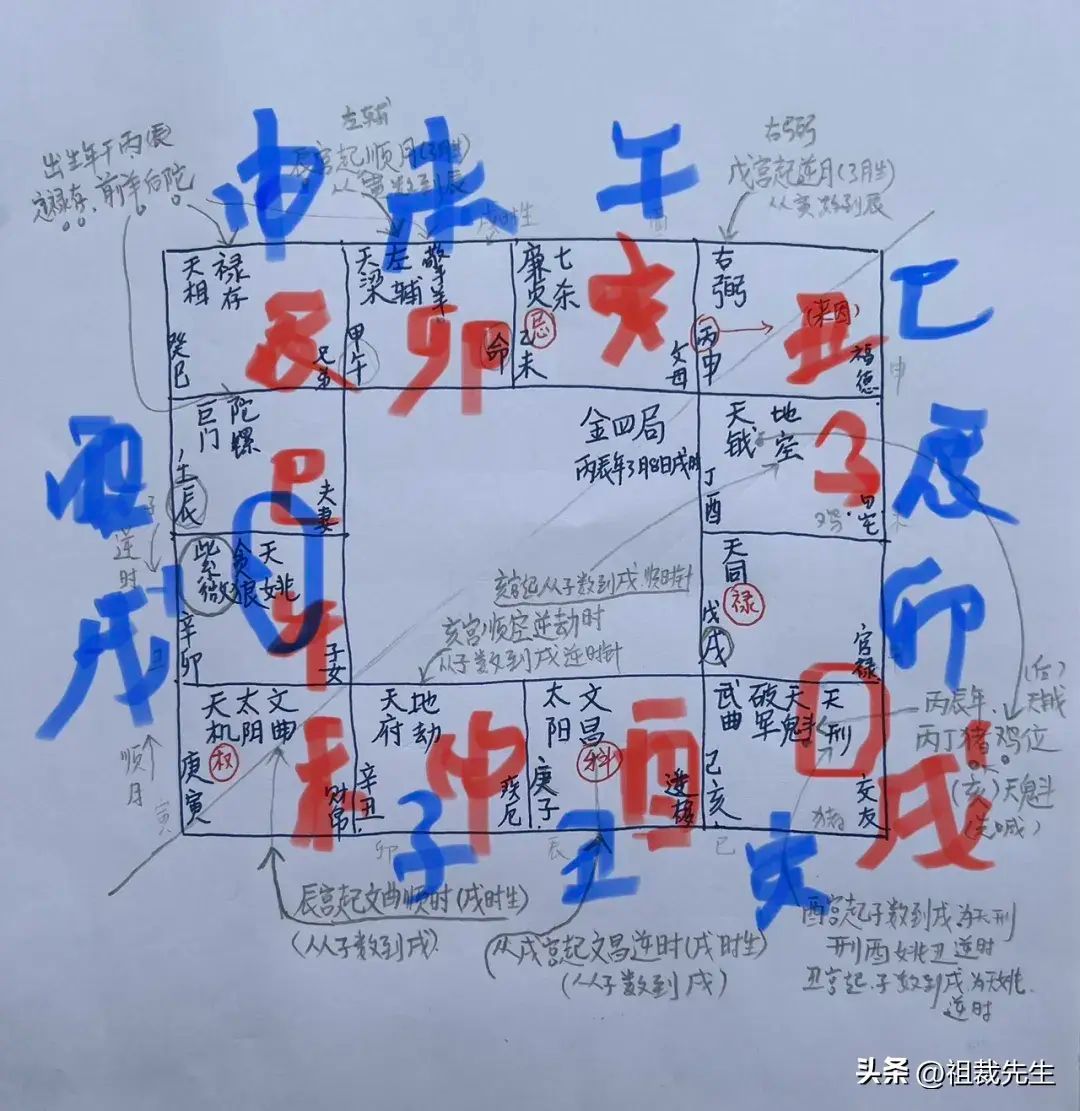 申
未
午
巳
辰
卯
酉
戌
子
丑
亥
出生年干丙辰
定禄存、前羊后陀
左辅
辰宫起顺月(3月生)
从寅数到辰
右弼
戌宫起逆月(3月生)
从寅数到辰
天相
禄存
癸巳
兄弟
辰
天梁
左辅
擎羊
甲午
命
卯
廉贞
七杀
忌
乙未
父母
右弼
丙申
(来因)
福德
丑
巨门
陀螺
壬辰
夫妻
巳
金四局
丙辰年3月8日戌时
天钺
地空
丁酉
田宅
子
鸡
紫微
贪狼
天姚
辛卯
子女
午
天同
禄
戊戌
官禄
亥宫起从子数到戌顺时针
亥宫顺空逆劫时
从子数到戌逆时针
天机
太阴
文曲
权
庚寅
财帛
未
天府
地劫
辛丑
疾厄
申
太阳
文昌
科
庚子
迁移
酉
武曲
破军
天魁
天刑
己亥
交友
戌
猪
逆时
顺月
寅
卯
辰
巳
申
丙辰年
丙丁猪鸡位
(后)
天钺
(亥)天魁
(先喊)
辰宫起文曲顺时(戌时生)
(从子数到戌)
从戌宫起文昌逆时(戌时生)
(从子数到戌)
酉宫起子数到戌为天刑
刑酉姚丑逆时
丑宫起子数到戌为天姚
逆时
头条 @祖裁先生